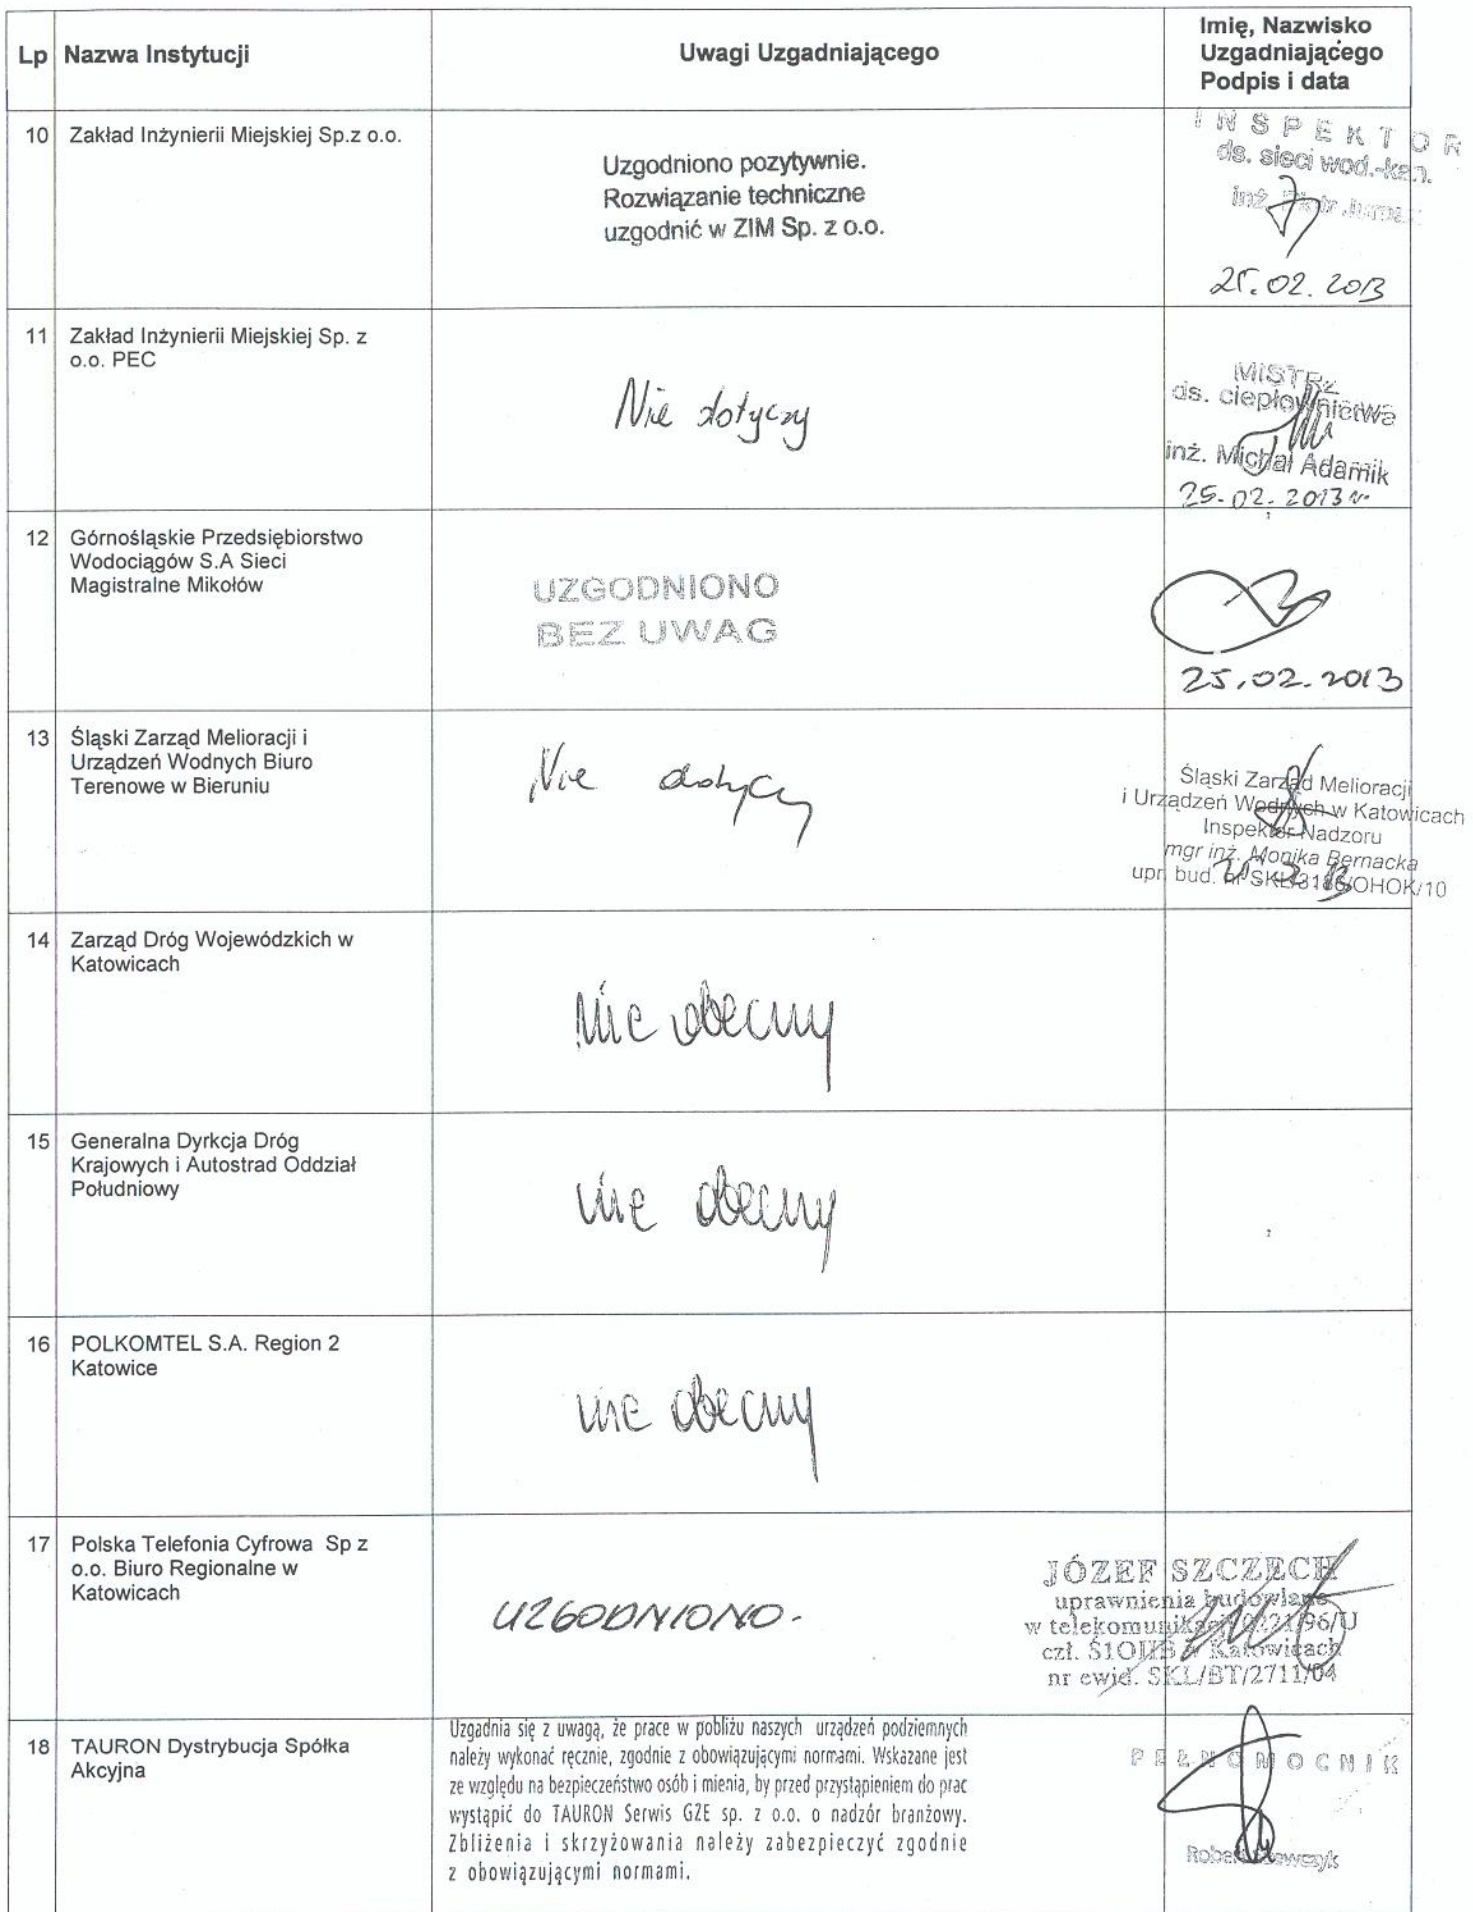 Lp
Nazwa Instytucji
Uwagi Uzgadniającego
Imię, Nazwisko
Uzgadniającego
Podpis i data
10
Zakład Inżynierii Miejskiej Sp.z o.o.
Uzgodniono pozytywnie.
Rozwiązanie techniczne
uzgodnić w ZIM Sp. z o.o.
INSPEKTOR
ds. sieci wod.-kan.
inż. Piotr
25.02.2013
11
Zakład Inżynierii Miejskiej Sp. z
o.o. PEC
Nie dotyczy
MISTRZ
ds. ciepłownictwa
inż. Michał Adamik
25.02.2013 r.
12
Górnośląskie Przedsiębiorstwo
Wodociągów S.A Sieci
Magistralne Mikołów
UZGODNIONO
BEZ UWAG
25.02.2013
13
Śląski Zarząd Melioracji i
Urządzeń Wodnych Biuro
Terenowe w Bieruniu
Nie dotyczy
Śląski Zarząd Melioracji
i Urządzeń Wodnych w Katowicach
Inspektor Nadzoru
mgr inż. Monika Bernacka
upr. bud. nr
14
Zarząd Dróg Wojewódzkich w
Katowicach
nie obecny
15
Generalna Dyrkcja Dróg
Krajowych i Autostrad Oddział
Południowy
nie obecny
16
POLKOMTEL S.A. Region 2
Katowice
nie obecny
17
Polska Telefonia Cyfrowa Sp z
o.o. Biuro Regionalne w
Katowicach
UZGODNIONO.
JÓZEF SZCZECH
uprawnienia budowlane
w telekomunikacji 0221/96/U
czł. w Katowicach
nr ewid. SKL/BT/2711/04
18
TAURON Dystrybucja Spółka
Akcyjna
Uzgadnia się z uwagą, że prace w pobliżu naszych urządzeń podziemnych
należy wykonać ręcznie, zgodnie z obowiązującymi normami. Wskazane jest
ze względu na bezpieczeństwo osób i mienia, by przed przystąpieniem do prac
wystąpić do TAURON Serwis GZE sp. z o.o. o nadzór branżowy.
Zbliżenia i skrzyżowania należy zabezpieczyć zgodnie
z obowiązującymi normami.
PEŁNOMOCNIK
Robert Szewczyk